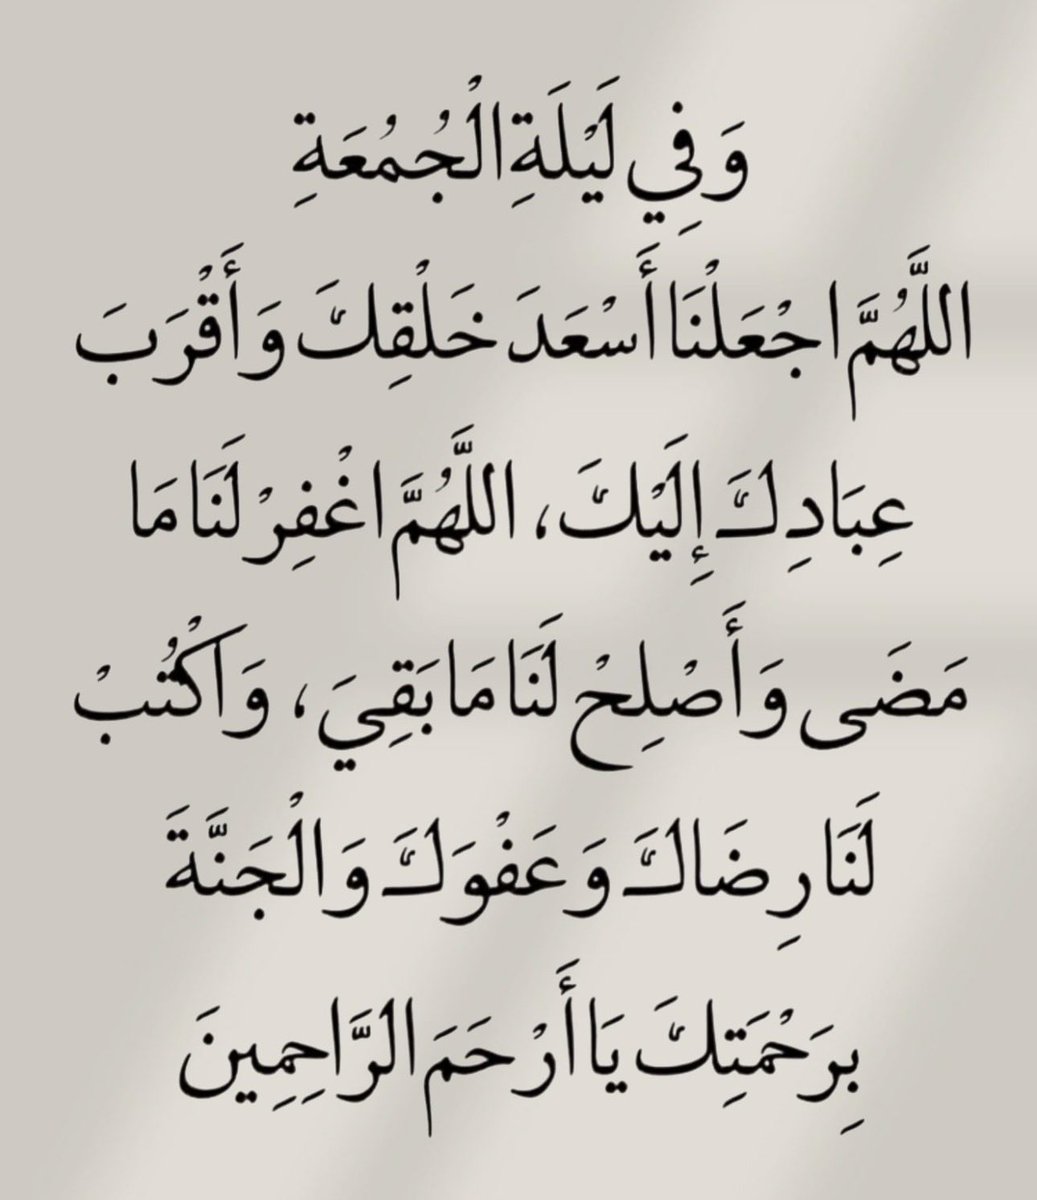 وَفِي لَيْلَةِ الْجُمُعَةِ
اللَّهُمَّ اجْعَلْنَا أَسْعَدَ خَلْقِكَ وَأَقْرَبَ
عِبَادِكَ إِلَيْكَ، اللَّهُمَّ اغْفِرْ لَنَا مَا
مَضَى وَأَصْلِحْ لَنَا مَا بَقِيَ، وَاكْتُبْ
لَنَا رِضَاكَ وَعَفْوَكَ وَالْجَنَّةَ
بِرَحْمَتِكَ يَا أَرْحَمَ الرَّاحِمِينَ